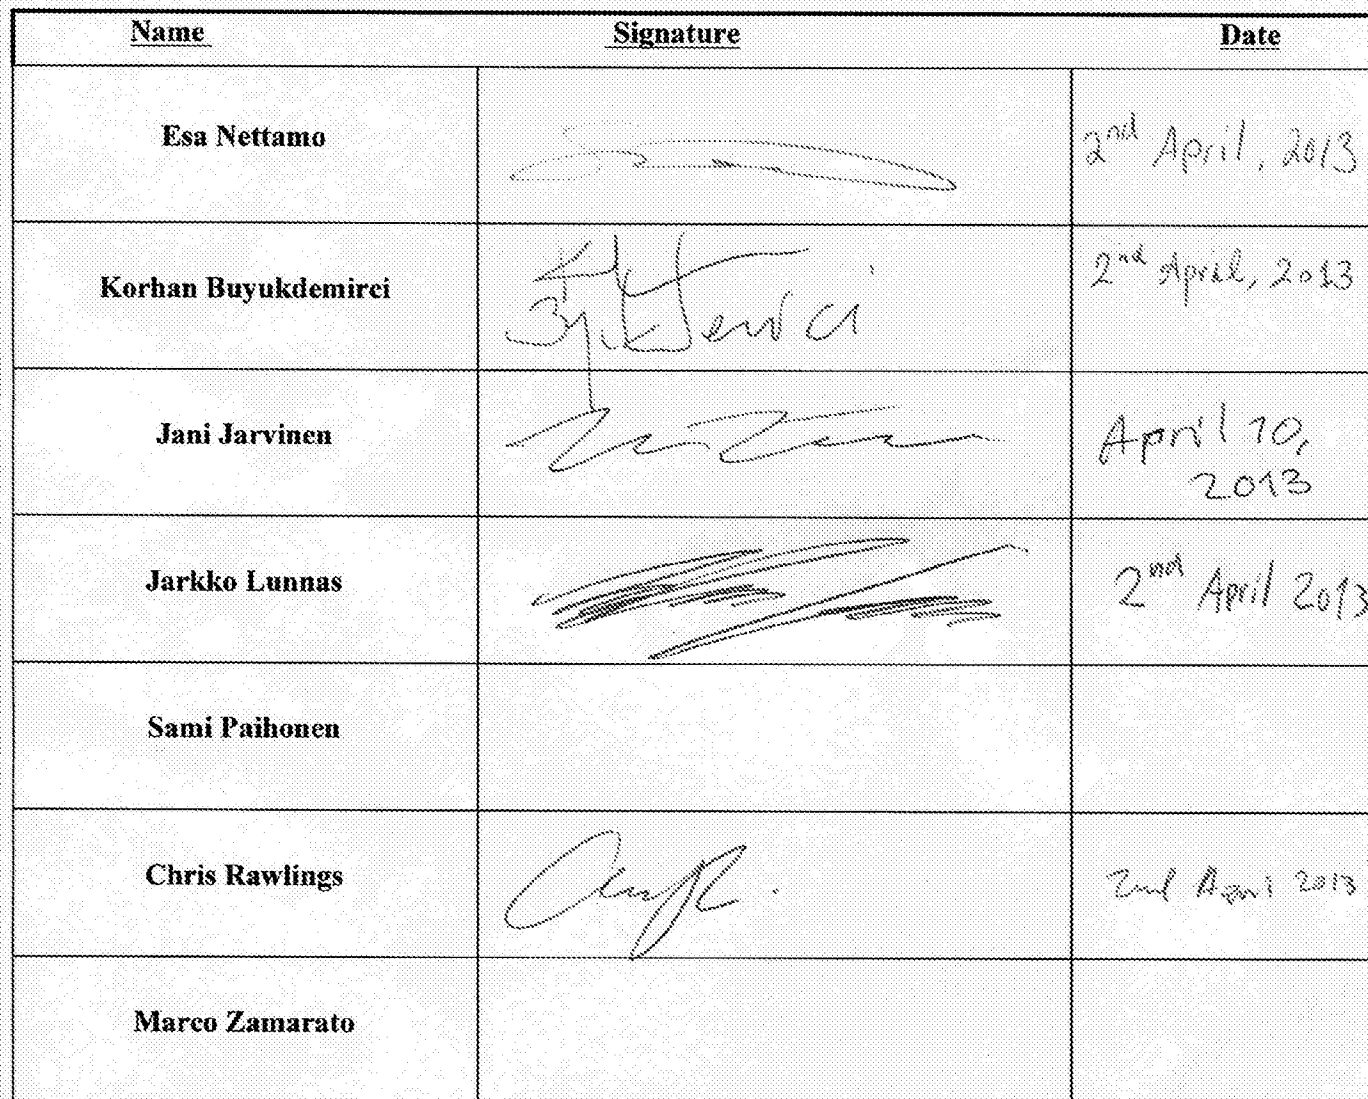 Name Signature Date
Esa Nettamo 2nd April, 2013
Korhan Buyukdemirci 2nd April, 2013
Buyukdemirci
Jani Jarvinen April 10,
2013
Jarkko Lunnas 2nd April 2013
Sami Paihonen
Chris Rawlings 2nd April 2013
Marco Zamarato